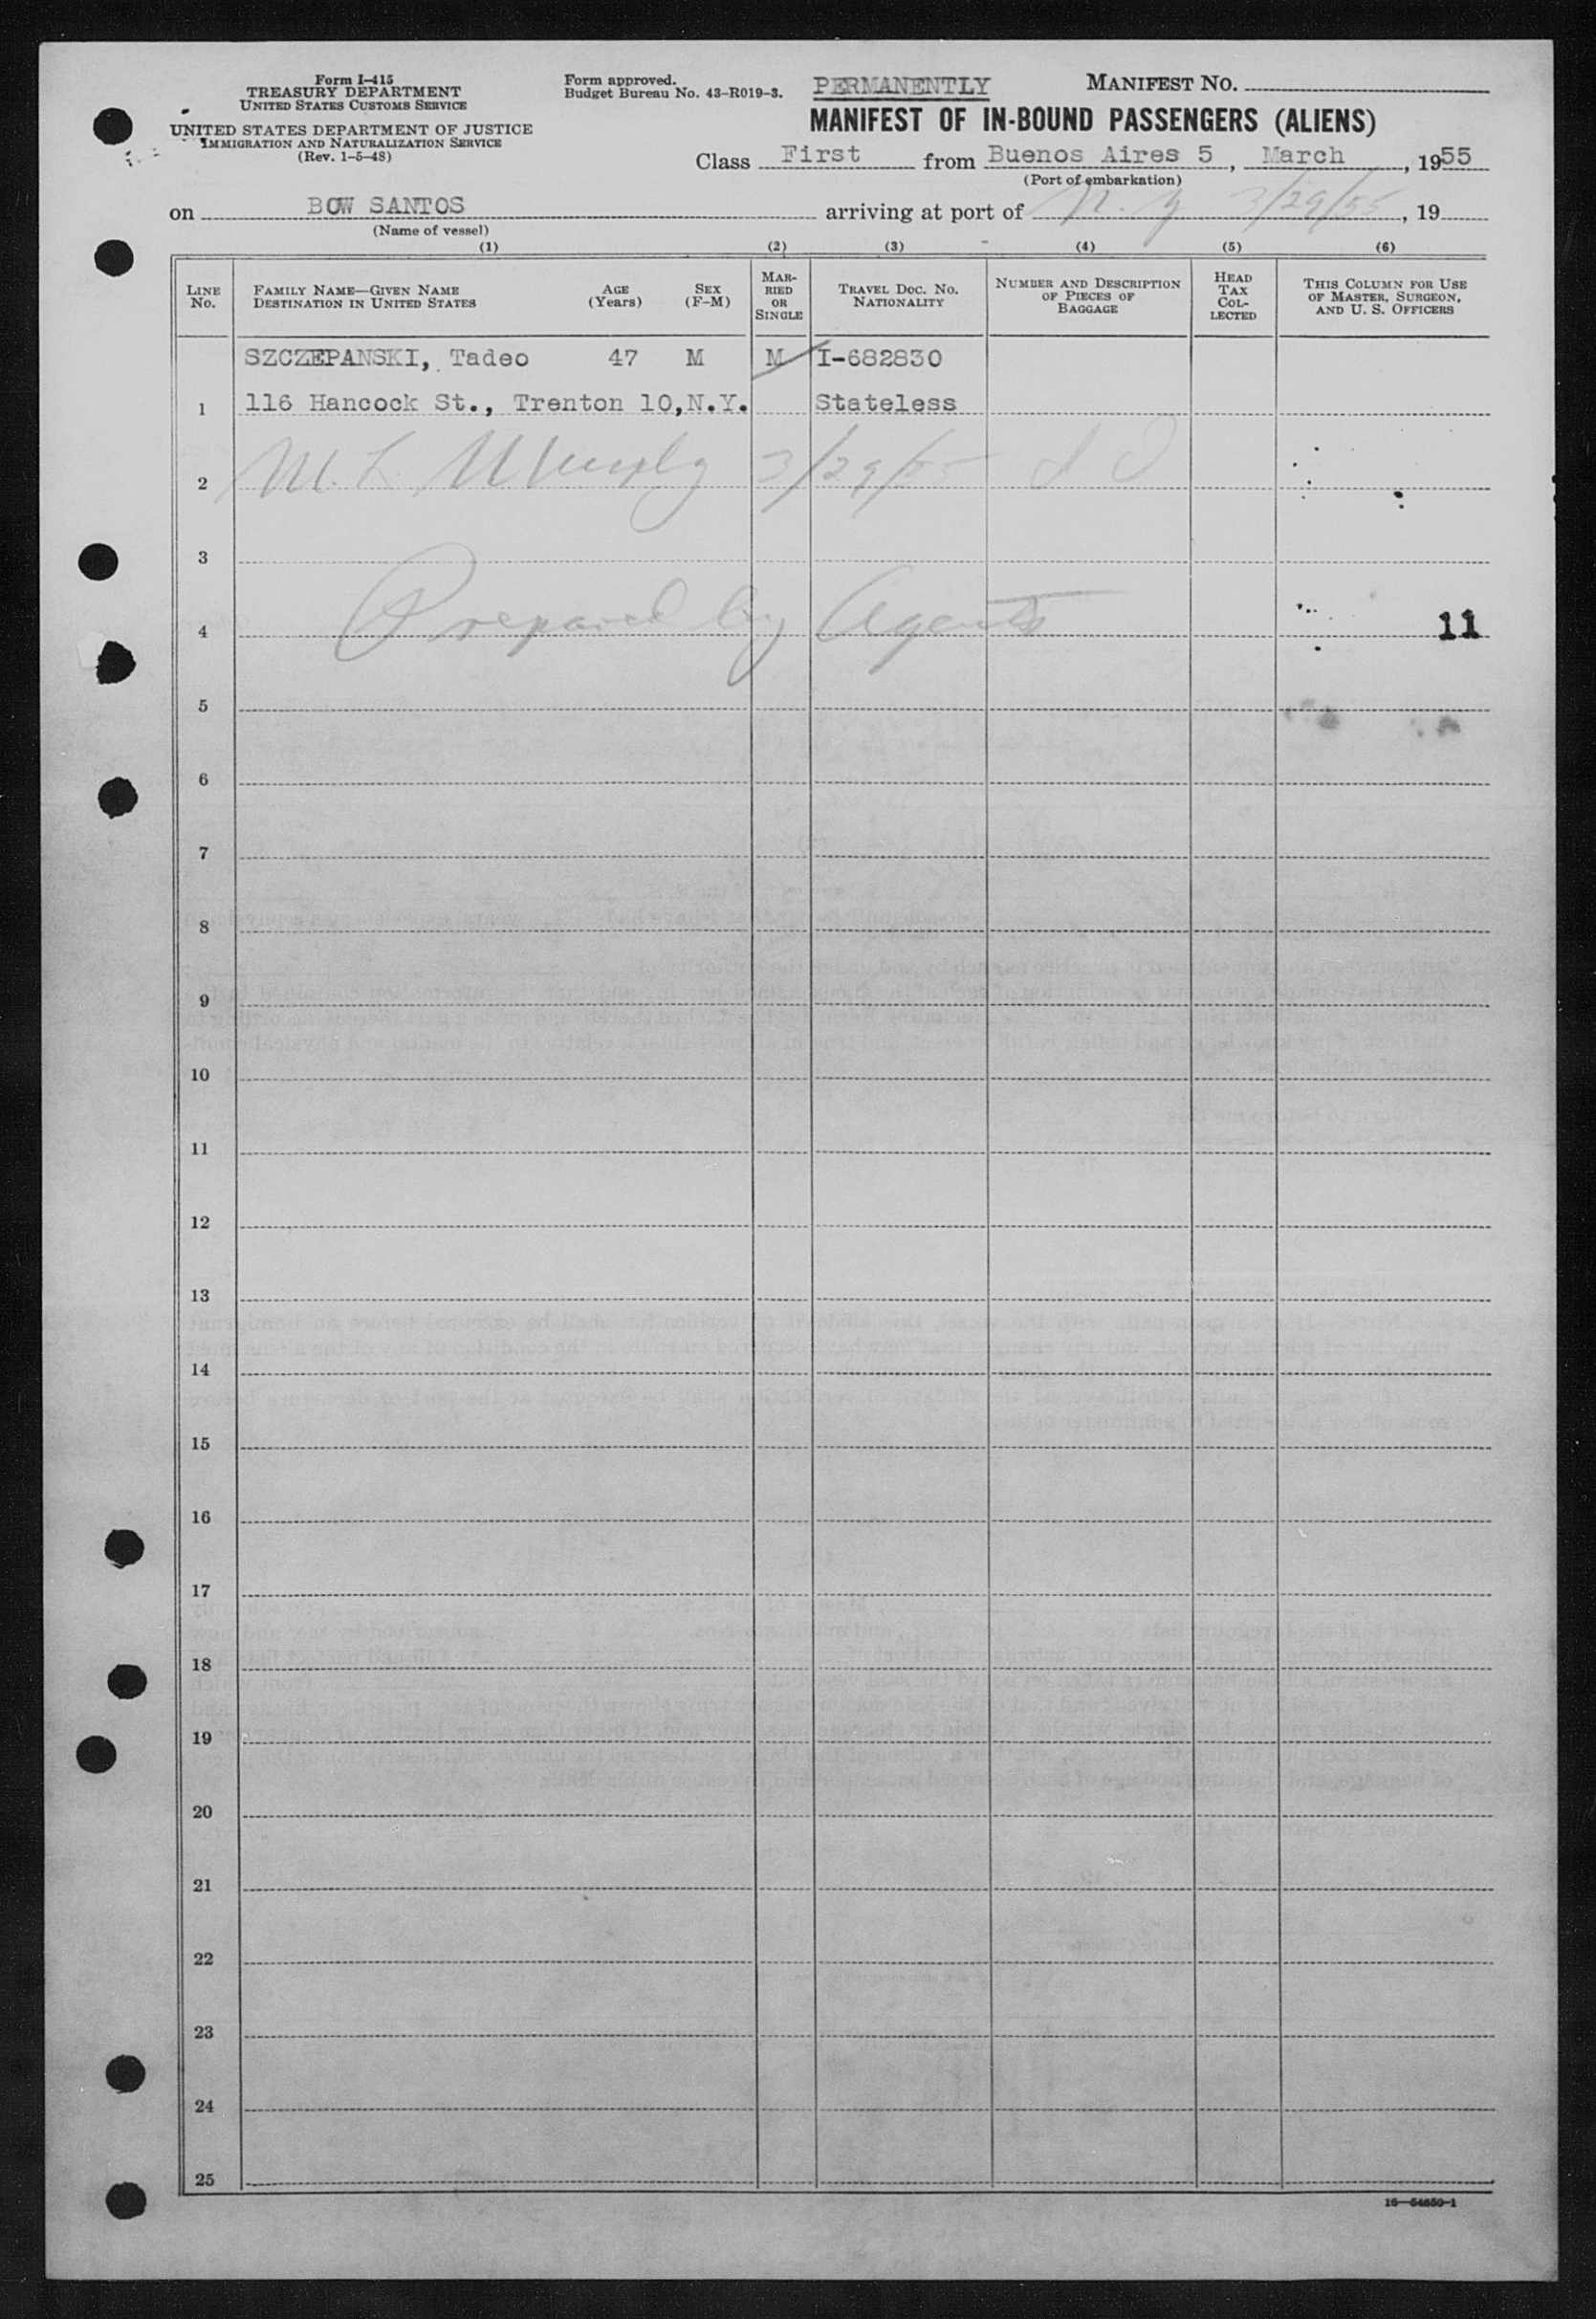 Form I-415
TREASURY DEPARTMENT
UNITED STATES CUSTOMS SERVICE
UNITED STATES DEPARTMENT OF JUSTICE
IMMIGRATION AND NATURALIZATION SERVICE
(Rev. 1-5-48)
Form approved.
Budget Bureau No. 43-R019-3.
PERMANENTLY
MANIFEST NO.
MANIFEST OF IN-BOUND PASSENGERS (ALIENS)
Class First from Buenos Aires 5, March, 1955
(Port of embarkation)
on BOW SANTOS arriving at port of N.Y 3/29/55, 19
(Name of vessel)
(1) (2) (3) (4) (5) (6)
LINE No.
FAMILY NAME—GIVEN NAME
DESTINATION IN UNITED STATES
AGE (Years)
SEX (F-M)
MARRIED OR SINGLE
TRAVEL DOC. NO.
NATIONALITY
NUMBER AND DESCRIPTION OF PIECES OF BAGGAGE
HEAD TAX COLLECTED
THIS COLUMN FOR USE OF MASTER, SURGEON, AND U. S. OFFICERS
SZCZEPANSKI, Tadeo 47 M M I-682830
1 116 Hancock St., Trenton 10,N.Y. Stateless
2 M. L. 3/29/55
3
Prepared by Agents
4 11
5
6
7
8
9
10
11
12
13
14
15
16
17
18
19
20
21
22
23
24
25
16—54650-1